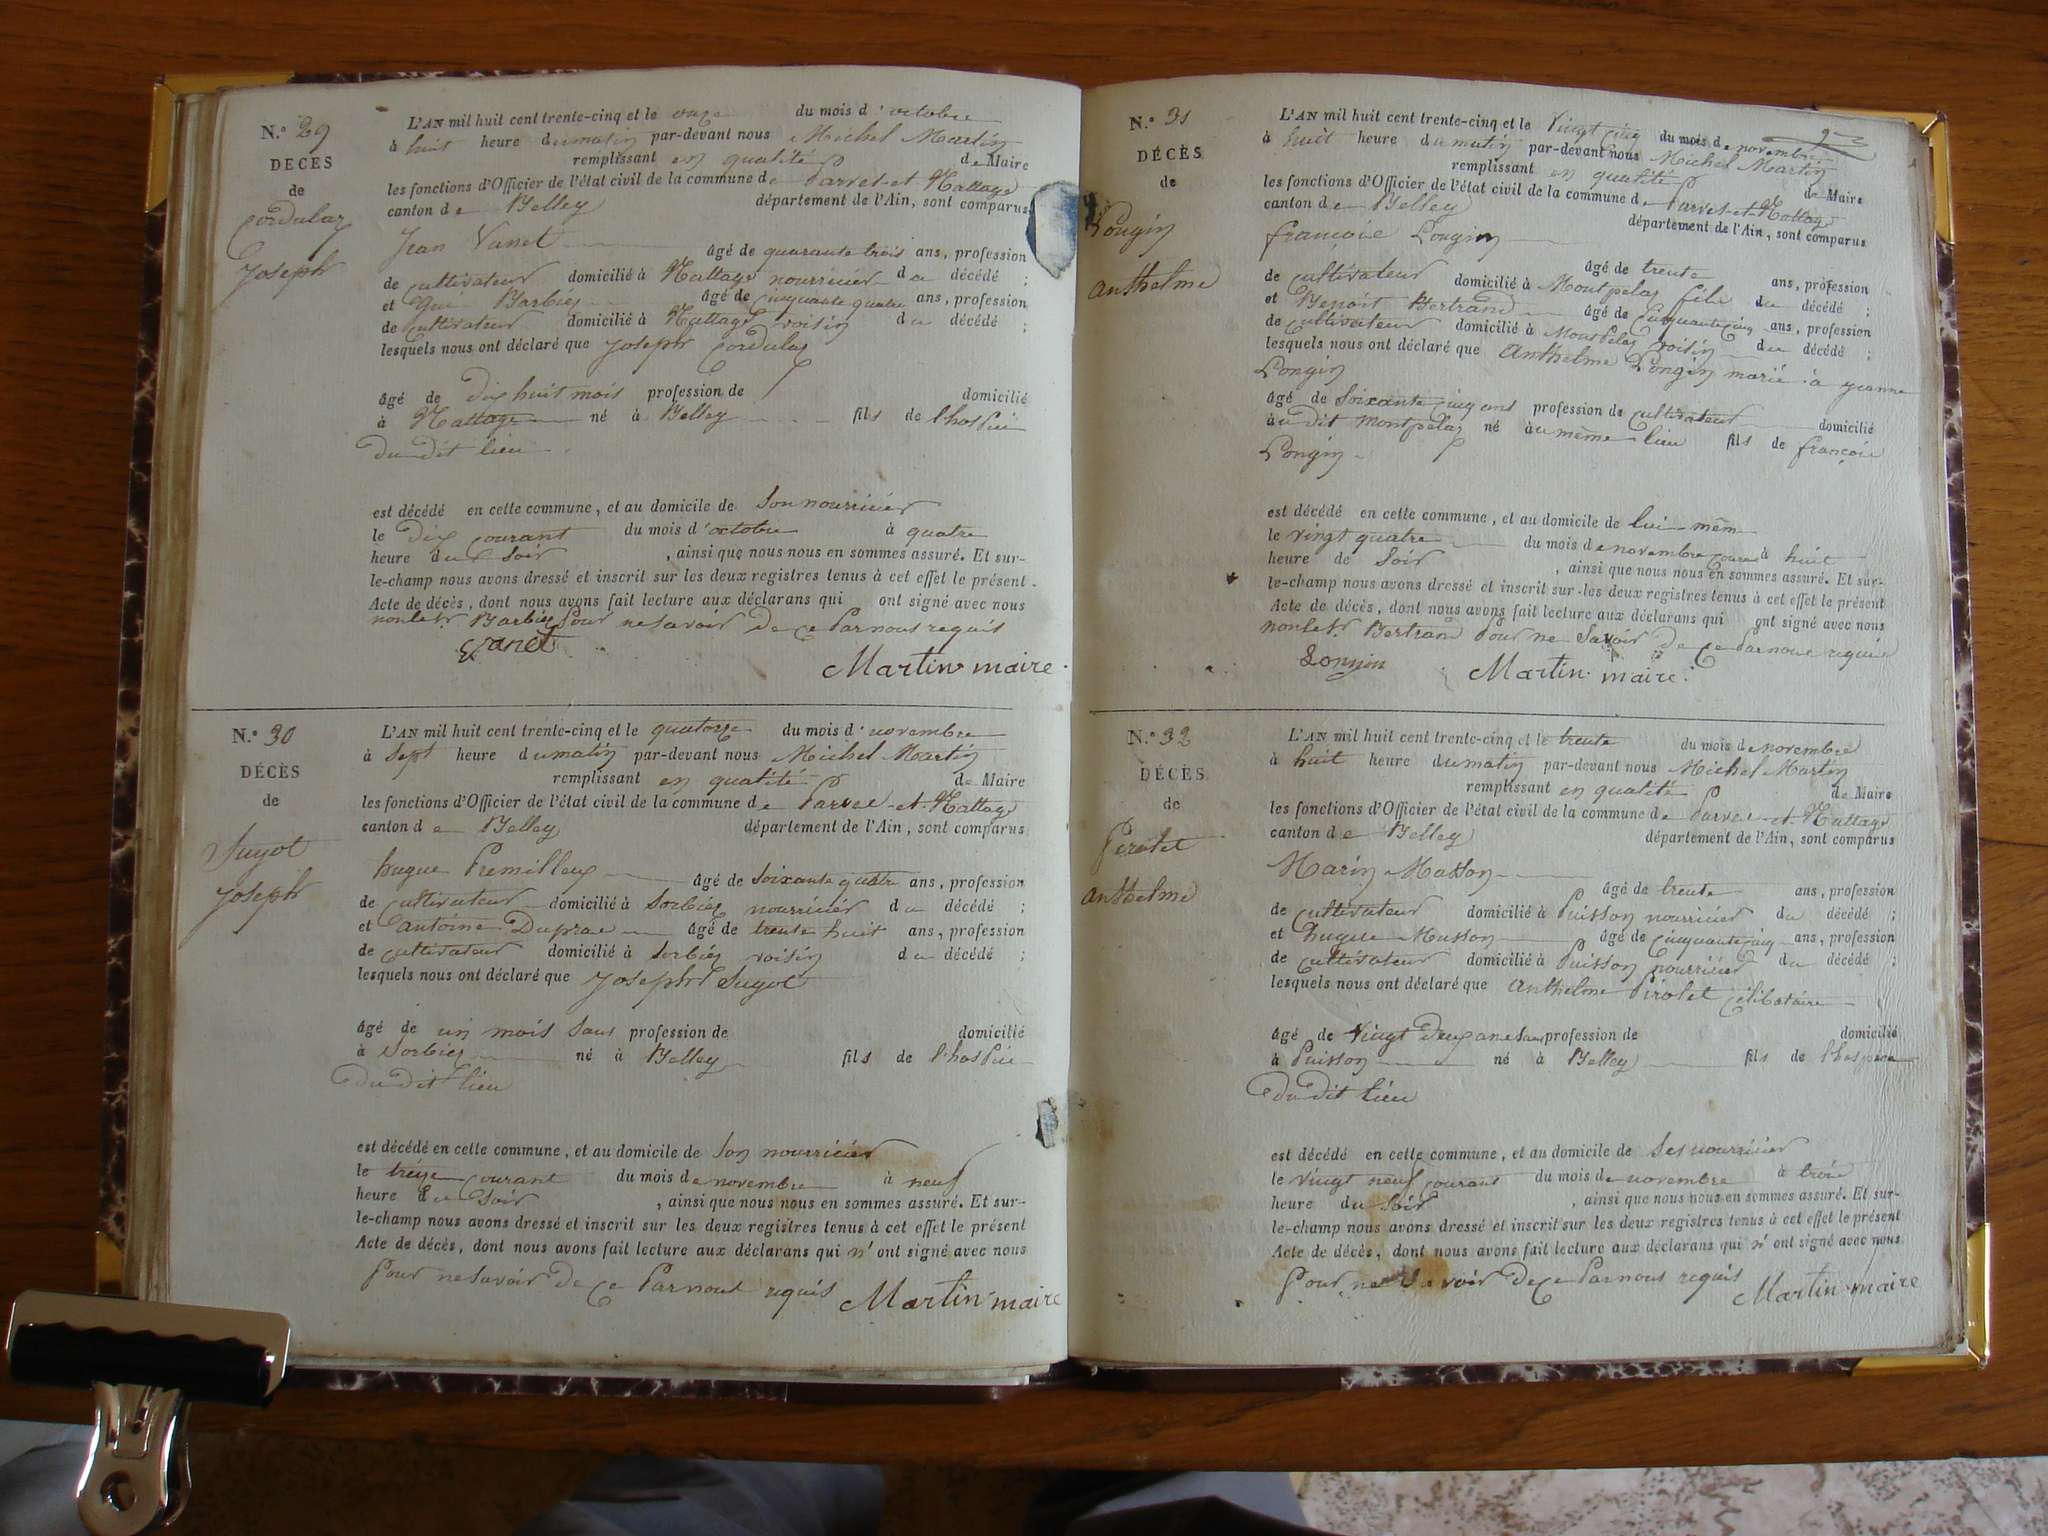 N.° 29
DÉCÈS
de
Cordulas
Joseph
L'AN mil huit cent trente-cinq et le onze du mois d'octobre
à huit heure du matin par-devant nous Michel Martin
remplissant en qualité de Maire
les fonctions d'Officier de l'état civil de la commune de Parves et Nattage
canton de Belley département de l'Ain, sont comparus
Jean Vanet âgé de quarante trois ans, profession
de cultivateur domicilié à Nattage nourricier du décédé ;
et Barbier âgé de cinquante quatre ans, profession
de cultivateur domicilié à Nattage voisin du décédé ;
lesquels nous ont déclaré que Joseph Cordulas
âgé de dix huit mois profession de domicilié
à Nattage né à Belley fils de l'hospice
du dit lieu
est décédé en cette commune, et au domicile de son nourricier
le dix courant du mois d'octobre à quatre
heure du soir , ainsi que nous nous en sommes assuré. Et sur-
le-champ nous avons dressé et inscrit sur les deux registres tenus à cet effet le présent
Acte de décès, dont nous avons fait lecture aux déclarans qui ont signé avec nous
non le sr Barbier pour ne savoir de ce par nous requis
Vanet
Martin maire.
N.° 30
DÉCÈS
de
Suyot
Joseph
L'AN mil huit cent trente-cinq et le quatorze du mois d'novembre
à sept heure du matin par-devant nous Michel Martin
remplissant en qualité de Maire
les fonctions d'Officier de l'état civil de la commune de Parves et Nattage
canton de Belley département de l'Ain, sont comparus
hugue Premilleux âgé de soixante quatre ans, profession
de cultivateur domicilié à Sorbier nourricier du décédé ;
et antoine Duprae âgé de trente huit ans, profession
de cultivateur domicilié à Sorbier voisin du décédé ;
lesquels nous ont déclaré que Joseph Suyot
âgé de un mois sans profession de domicilié
à Sorbier né à Belley fils de l'hospice
du dit lieu
est décédé en cette commune, et au domicile de son nourricier
le treize courant du mois de novembre à neuf
heure du soir , ainsi que nous nous en sommes assuré. Et sur-
le-champ nous avons dressé et inscrit sur les deux registres tenus à cet effet le présent
Acte de décès, dont nous avons fait lecture aux déclarans qui n'ont signé avec nous
pour ne savoir de ce par nous requis Martin maire
N.° 31
DÉCÈS
de
Longin
anthelme
L'AN mil huit cent trente-cinq et le vingt cinq du mois de novembre
à huit heure du matin par-devant nous Michel Martin
remplissant en qualité de Maire
les fonctions d'Officier de l'état civil de la commune de Parves et Nattage
canton de Belley département de l'Ain, sont comparus
françois Longin âgé de trente ans, profession
de cultivateur domicilié à Montpelas fils du décédé ;
et Benoit Bertrand âgé de cinquante cinq ans, profession
de cultivateur domicilié à Montpelas voisin du décédé ;
lesquels nous ont déclaré que anthelme Longin marié à jeanne
Longin
âgé de soixante cinq ans profession de cultivateur domicilié
au dit montpelas né au même lieu fils de françois
Longin
est décédé en cette commune, et au domicile de lui-même
le vingt quatre du mois de novembre à huit
heure de soir , ainsi que nous nous en sommes assuré. Et sur-
le-champ nous avons dressé et inscrit sur les deux registres tenus à cet effet le présent
Acte de décès, dont nous avons fait lecture aux déclarans qui ont signé avec nous
non le sr Bertrand pour ne savoir de ce par nous requis
Longin Martin maire.
N.° 32
DÉCÈS
de
Pirolet
anthelme
L'AN mil huit cent trente-cinq et le trente du mois de novembre
à huit heure du matin par-devant nous Michel Martin
remplissant en qualité de Maire
les fonctions d'Officier de l'état civil de la commune de Parves et Nattage
canton de Belley département de l'Ain, sont comparus
Marin Masson âgé de trente ans, profession
de cultivateur domicilié à Puisson nourricier du décédé ;
et hugue Masson âgé de cinquante cinq ans, profession
de cultivateur domicilié à Puisson nourricier du décédé ;
lesquels nous ont déclaré que anthelme Pirolet célibataire
âgé de vingt deux ans sans profession de domicilié
à Puisson né à Belley fils de l'hospice
du dit lieu
est décédé en cette commune, et au domicile de ses nourricier
le vingt neuf courant du mois de novembre à trois
heure du soir , ainsi que nous nous en sommes assuré. Et sur-
le-champ nous avons dressé et inscrit sur les deux registres tenus à cet effet le présent
Acte de décès, dont nous avons fait lecture aux déclarans qui n'ont signé avec nous
pour ne savoir de ce par nous requis Martin maire